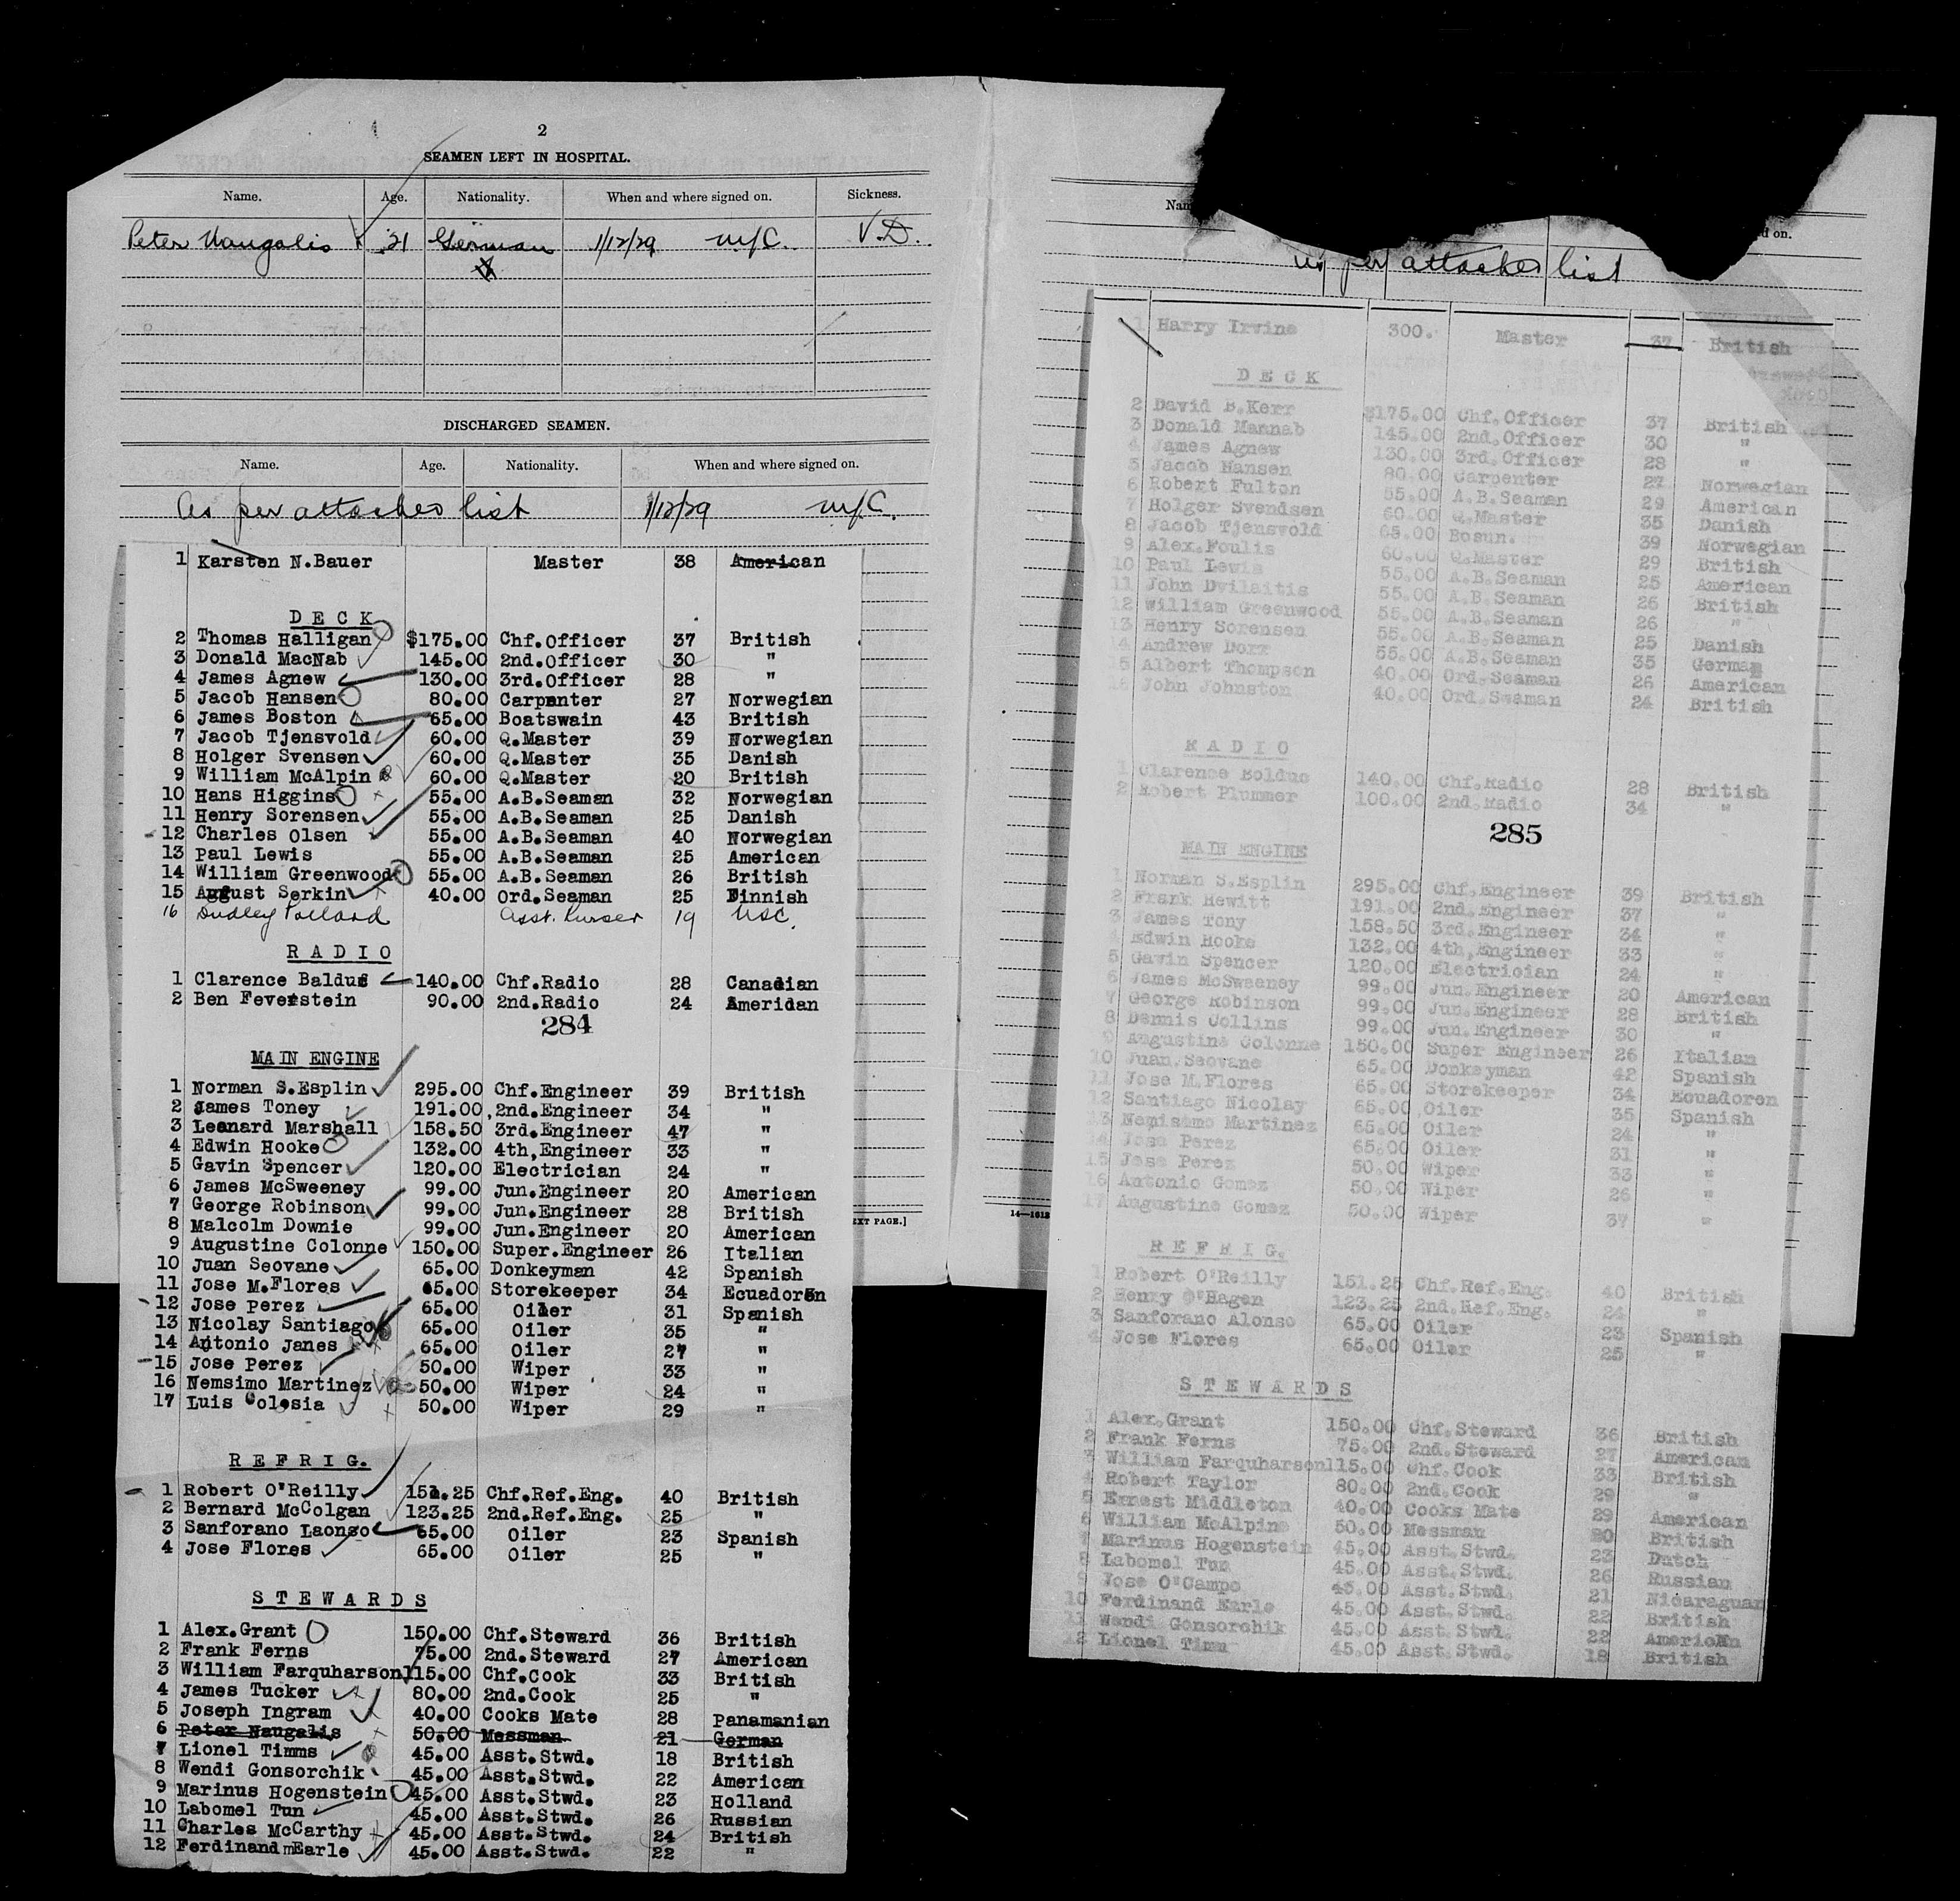 2
SEAMEN LEFT IN HOSPITAL.
Name. Age. Nationality. When and where signed on. Sickness.
Peter Naugalis 21 German 1/12/29 NYC. V.D.
DISCHARGED SEAMEN.
Name. Age. Nationality. When and where signed on.
As per attached list 1/12/29 NYC.
1 Karsten N.Bauer Master 38 American
DECK
2 Thomas Halligan $175.00 Chf.Officer 37 British
3 Donald MacNab 145.00 2nd.Officer 30 "
4 James Agnew 130.00 3rd.Officer 28 "
5 Jacob Hansen 80.00 Carpenter 27 Norwegian
6 James Boston 65.00 Boatswain 43 British
7 Jacob Tjensvold 60.00 Q.Master 39 Norwegian
8 Holger Svensen 60.00 Q.Master 35 Danish
9 William McAlpin 60.00 Q.Master 20 British
10 Hans Higgins 55.00 A.B.Seaman 32 Norwegian
11 Henry Sorensen 55.00 A.B.Seaman 25 Danish
12 Charles Olsen 55.00 A.B.Seaman 40 Norwegian
13 Paul Lewis 55.00 A.B.Seaman 25 American
14 William Greenwood 55.00 A.B.Seaman 26 British
15 August Serkin 40.00 Ord.Seaman 25 Finnish
16 Dudley Pollard Asst. Purser 19 USC.
RADIO
1 Clarence Baldus 140.00 Chf.Radio 28 Canadian
2 Ben Feverstein 90.00 2nd.Radio 24 Ameridan
284
MAIN ENGINE
1 Norman S.Esplin 295.00 Chf.Engineer 39 British
2 James Toney 191.00 2nd.Engineer 34 "
3 Leanard Marshall 158.50 3rd.Engineer 47 "
4 Edwin Hooke 132.00 4th,Engineer 33 "
5 Gavin Spencer 120.00 Electrician 24 "
6 James McSweeney 99.00 Jun.Engineer 20 American
7 George Robinson 99.00 Jun.Engineer 28 British
8 Malcolm Downie 99.00 Jun.Engineer 20 American
9 Augustine Colonne 150.00 Super.Engineer 26 Italian
10 Juan Seovane 65.00 Donkeyman 42 Spanish
11 Jose M.Flores 65.00 Storekeeper 34 Ecuadoren
12 Jose Perez 65.00 Oiler 31 Spanish
13 Nicolay Santiago 65.00 Oiler 35 "
14 Antonio Janes 65.00 Oiler 27 "
15 Jose Perez 50.00 Wiper 33 "
16 Nemsimo Martinez 50.00 Wiper 24 "
17 Luis Colosia 50.00 Wiper 29 "
REFRIG.
1 Robert O'Reilly 151.25 Chf.Ref.Eng. 40 British
2 Bernard McColgan 123.25 2nd.Ref.Eng. 25 "
3 Sanforano Laonso 65.00 Oiler 23 Spanish
4 Jose Flores 65.00 Oiler 25 "
STEWARDS
1 Alex.Grant 150.00 Chf.Steward 36 British
2 Frank Ferns 75.00 2nd.Steward 27 American
3 William Farquharson 115.00 Chf.Cook 33 British
4 James Tucker 80.00 2nd.Cook 25 "
5 Joseph Ingram 40.00 Cooks Mate 28 Panamanian
6 Peter Naugalis 50.00 Messman 21 German
7 Lionel Timms 45.00 Asst.Stwd. 18 British
8 Wendi Gonsorchik 45.00 Asst.Stwd. 22 American
9 Marinus Hogenstein 45.00 Asst.Stwd. 23 Holland
10 Labomel Tun 45.00 Asst.Stwd. 26 Russian
11 Charles McCarthy 45.00 Asst.Stwd. 24 British
12 FerdinandmEarle 45.00 Asst.Stwd. 22 "
EXT PAGE.]
Nam d on.
as per attached list
1 Harry Irvine 300. Master 37 British
DECK
2 David B.Kerr $175.00 Chf.Officer 37 British
3 Donald Mannab 145.00 2nd.Officer 30 "
4 James Agnew 130.00 3rd.Officer 28 "
5 Jacob Hansen 80.00 Carpenter 27 Norwegian
6 Robert Fulton 55.00 A.B.Seaman 29 American
7 Holger Svendsen 60.00 Q.Master 35 Danish
8 Jacob Tjensvold 65.00 Bosun. 39 Norwegian
9 Alex.Foulis 60.00 Q.Master 29 British
10 Paul Lewis 55.00 A.B.Seaman 25 American
11 John Dvilaitis 55.00 A.B.Seaman 26 British
12 William Greenwood 55.00 A.B.Seaman 26 "
13 Henry Sorensen 55.00 A.B.Seaman 25 Danish
14 Andrew Dorr 55.00 A.B.Seaman 35 German
15 Albert Thompson 40.00 Ord.Seaman 26 American
16 John Johnston 40.00 Ord.Seaman 24 British
RADIO
1 Clarence Bolduc 140.00 Chf.Radio 28 British
2 Robert Plummer 100.00 2nd.Radio 34 "
285
MAIN ENGINE
1 Norman S.Esplin 295.00 Chf.Engineer 39 British
2 Frank Hewitt 191.00 2nd.Engineer 37 "
3 James Tony 158.50 3rd.Engineer 34 "
4 Edwin Hooke 132.00 4th,Engineer 33 "
5 Gavin Spencer 120.00 Electrician 24 "
6 James McSweeney 99.00 Jun.Engineer 20 American
7 George Robinson 99.00 Jun.Engineer 28 British
8 Dennis Collins 99.00 Jun.Engineer 30 "
9 Augustine Colonne 150.00 Super Engineer 26 Italian
10 Juan Seovane 65.00 Donkeyman 42 Spanish
11 Jose M.Flores 65.00 Storekeeper 34 Ecuadoren
12 Santiago Nicolay 65.00 Oiler 35 Spanish
13 Nemisimo Martinez 65.00 Oiler 24 "
14 Jose Perez 65.00 Oiler 31 "
15 Jose Perez 50.00 Wiper 33 "
16 Antonio Gomez 50.00 Wiper 26 "
17 Augustine Gomez 50.00 Wiper 37 "
14—1613
REFRIG.
1 Robert O'Reilly 151.25 Chf.Ref.Eng. 40 British
2 Henry O'Hagen 123.25 2nd.Ref.Eng. 24 "
3 Sanforano Alonso 65.00 Oiler 23 Spanish
4 Jose Flores 65.00 Oiler 25 "
STEWARDS
1 Alex.Grant 150.00 Chf.Steward 36 British
2 Frank Ferns 75.00 2nd.Steward 27 American
3 William Farquharson 115.00 Chf.Cook 33 British
4 Robert Taylor 80.00 2nd.Cook 29 "
5 Ernest Middleton 40.00 Cooks Mate 29 American
6 William McAlpine 50.00 Messman 20 British
7 Marinus Hogenstein 45.00 Asst.Stwd. 23 Dutch
8 Labomel Tun 45.00 Asst.Stwd. 26 Russian
9 Jose O'Campo 45.00 Asst.Stwd. 21 Nicaraguan
10 Ferdinand Earle 45.00 Asst.Stwd. 22 British
11 Wendi Gonsorchik 45.00 Asst.Stwd. 22 American
12 Lionel Timm 45.00 Asst.Stwd. 18 British